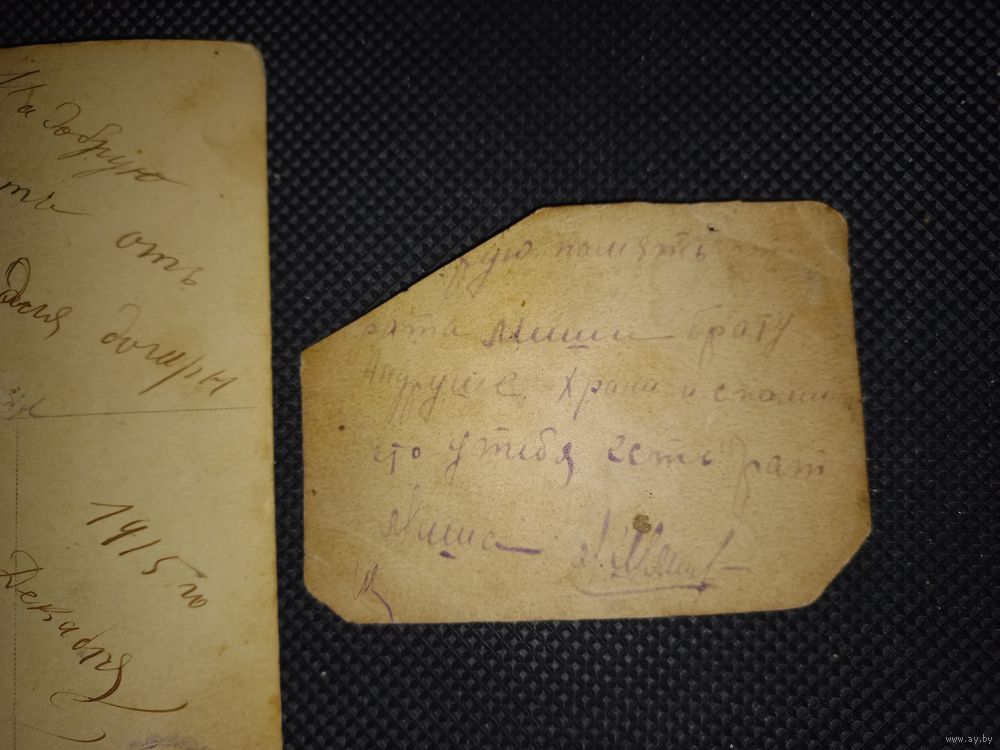 На добрую
ть отъ
Дня дочеры
1915 го
Декабря
ую память от
рата Миши брату
Андруше. Храни и спомин
что у тебя есть рат
Миша
www.ay.by